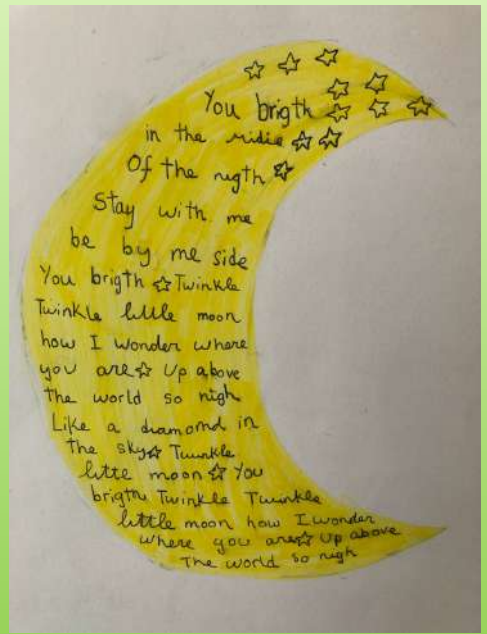 You brigth
in the midie
Of the nigth
Stay with me
be by me side
You brigth ☆ Twinkle
Twinkle little moon
how I wonder where
you are ☆ Up above
the world so nigh
Like a diamomd in
the sky ☆ Twinkle
litte moon ☆ You
brigth Twinkle Twinkle
little moon how I wonder
where you are ☆ Up above
The world so nigh